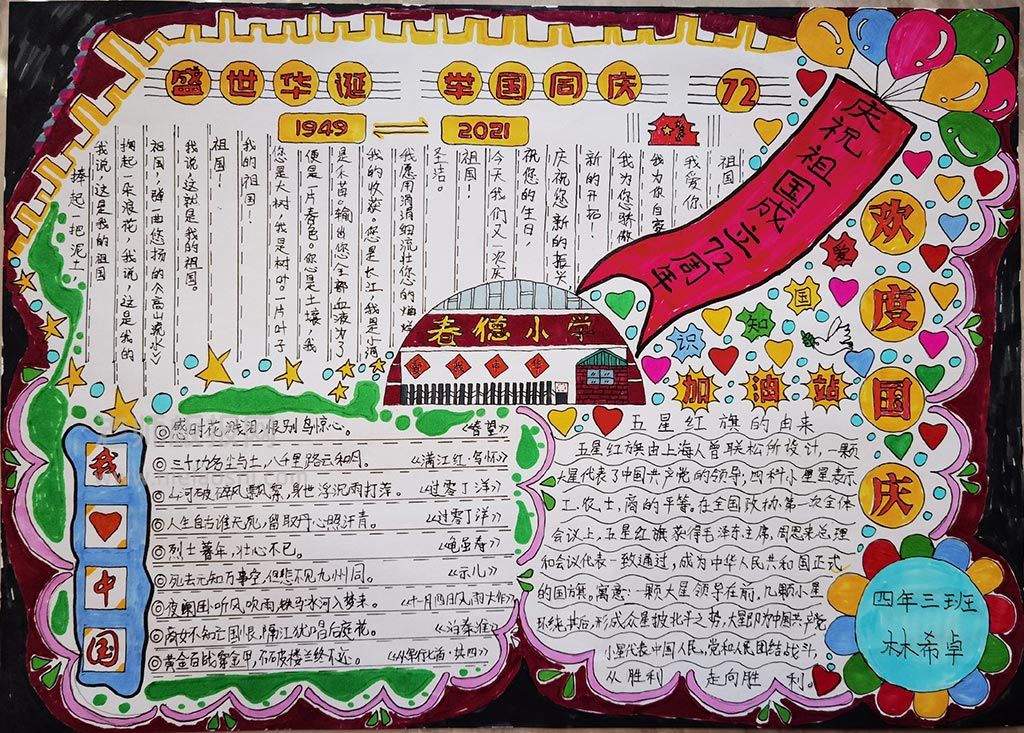 盛世华诞 举国同庆 72
1949 2021
庆祝祖国成立72周年
欢度国庆
祖国
我爱你
我为你自豪
我为您骄傲
新的开拓!
庆祝您新的振兴
祝您的生日,
今天我们又一次庆
祖国!
圣洁。
我愿用涓涓细流壮您的灿烂
我的收获。您是长江,我是小滴
是禾苗。输出您全部血液为了
便是一片春色。你总是土壤,我
您是大树,我是树叶。一片叶子
我的祖国!
祖国!
我说,这就是我的祖国。
祖国,群曲悠扬的《高山流水》
掬起一朵浪花,我说,这是我的
我说,这是我的祖国
捧起一把泥土
春德小学
我中华
爱国知识
加油站
我❤中国
◎感时花溅泪,恨别鸟惊心。《春望》
◎三十功名尘与土,八千里路云和月。《满江红·写怀》
◎山河破碎风飘絮,身世浮沉雨打萍。《过零丁洋》
◎人生自古谁无死,留取丹心照汗青。《过零丁洋》
◎烈士暮年,壮心不已。《龟虽寿》
◎死去元知万事空,但悲不见九州同。《示儿》
◎夜阑卧听风吹雨,铁马冰河入梦来。《十一月四日风雨大作》
◎商女不知亡国恨,隔江犹唱后庭花。《泊秦淮》
◎黄金百战穿金甲,不破楼兰终不还。《从军行七首·其四》
五星红旗的由来
五星红旗由上海人曾联松所设计,一颗
大星代表了中国共产党的领导,四科小星星表示
工、农、士、商的平等。在全国政协第一次全体
会议上,五星红旗获得毛泽东主席,周恩来总理
和会议代表一致通过,成为中华人民共和国正式
的国旗。寓意:一颗大星领导在前,几颗小星
环绕其后,形成众星拨北斗之势,大星即为中国共产党
小星代表中国人民。党和人民团结战斗,
从胜利走向胜利。
四年三班
林希卓